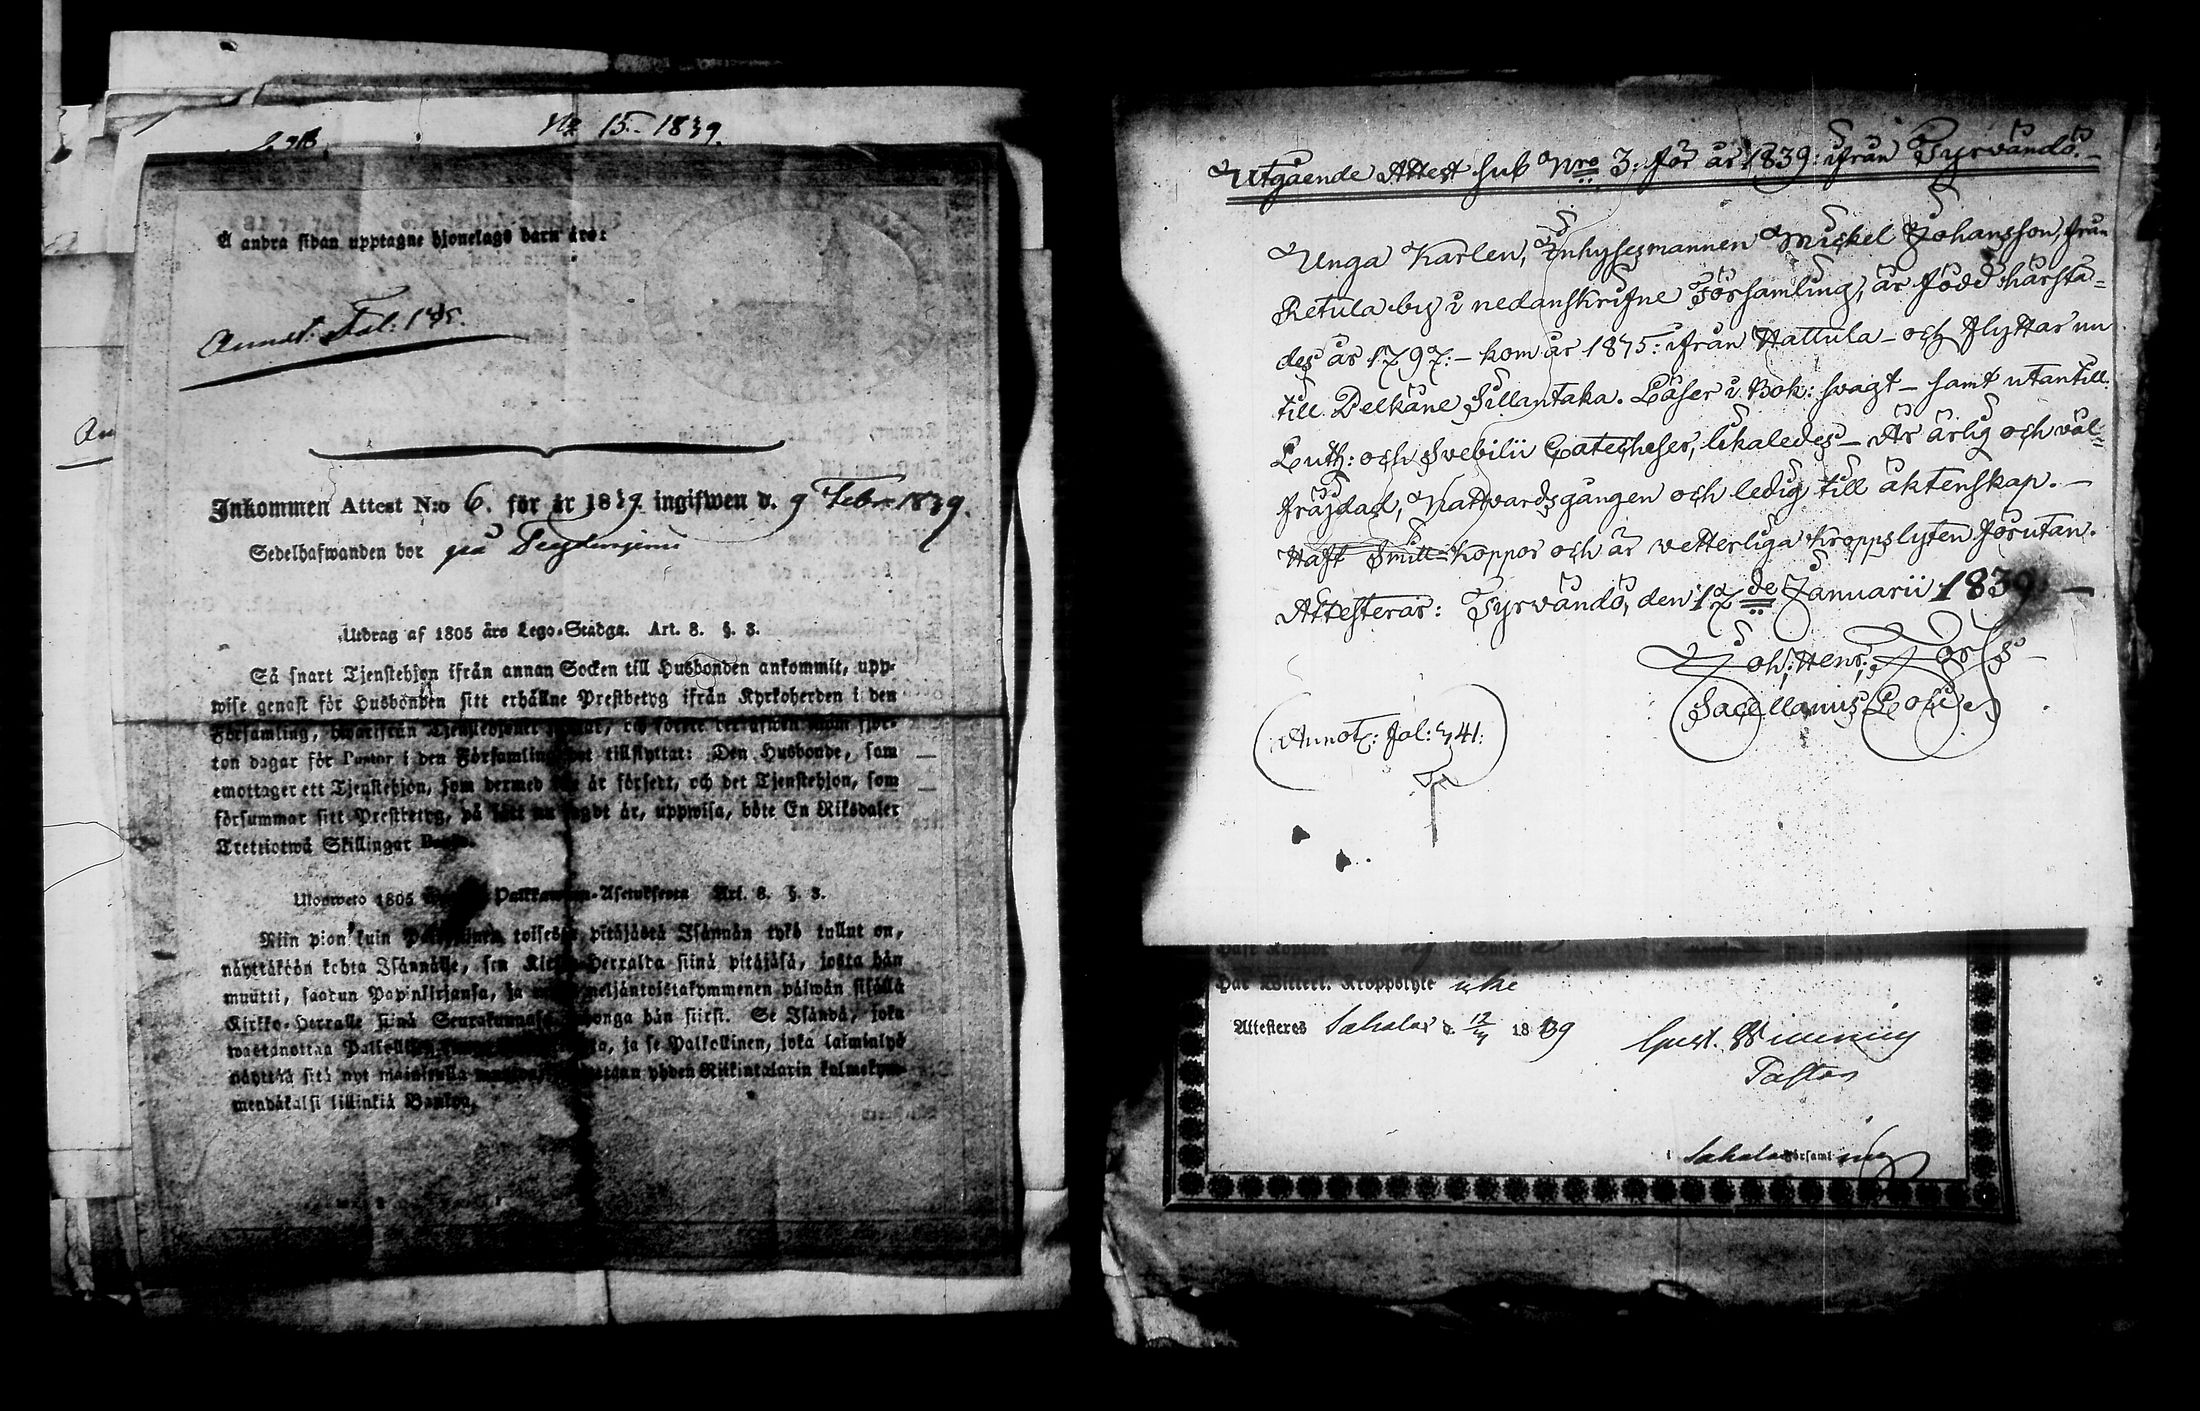 No 15. 1839.
Å andra sidan upptagne hjonelags barn äro:
Annot. Fol: 145.
Inkommen Attest N:o 6. för år 1839. ingifwen d. 9 Febr 1839.
Sedelhafwanden bor på
Utdrag af 1805 års Lego-Stadga. Art. 8. §. 3.
Så snart Tjenstehjon ifrån annan Socken till Husbonden ankommit, upp-
wise genast för Husbonden sitt erhållne Prestbetyg ifrån Kyrkoherden i den
Församling, hwarifrån Tjenstehjonet
ton dagar för Pastor i den Församling det tillflyttat: Den Husbonde, som
emottager ett Tjenstehjon, som dermed är försedt, och det Tjenstehjon, som
försummar sitt Prestbetyg, på sätt nu sagdt är, uppwisa, böte En Riksdaler
Trettiotwå Skillingar Banko.
Ulosweto 1805 Palkkawäen-Asetuksesta Art. 8. §. 3.
Niin pian kuin toisesta pitäjästä Isännän tykö tullut on,
näyttäköön kohta Isännälle, sen Kirkko-Herralta siinä pitäjäsä, josta hän
muutti, saadun Papinkirjansa, ja neljäntoistakymmenen päiwän sisällä
Kirkko-Herralle siinä Seurakunnasa, honga hän siirsi. Se Isändä, joka
wastanottaa ja se Palkollinen, joka laiminlyö
näyttää sitä nyt yhden Riikintalarin kolmekym-
mendäkaksi killinkiä Bankoa.
Utgående Attest sub Nro 3. för år 1839: ifrån Tyrvändö.
Unga Karlen, Inhysesmannen Mickel Johansson, från
Retula by i nedanskrifne Församling, är född härsta-
des år 1797. – kom år 1875: ifrån Hattula – och flyttar nu
till Pelkäne Sillantaka. Läser i Bok: svagt – samt utantill
Luth: och Svebilii Catecheser, likaledes – Är ärlig och väl-
fräjdad, Nattvardsgången och ledig till äktenskap. –
Haft Små-Koppor och är vetterliga kroppslyten förutan.
Attesteras: Tyrvändö, den 17de Januarii 1839. –
Joh: Henr:
Sacellanus Loci.
Annot: fol: 41:
Haft Koppor
Har Witterl. Kroppslyte icke
Attesteres Sahalax d. 18 39
Gust. Winning
Pastor
i Sahalax Församling